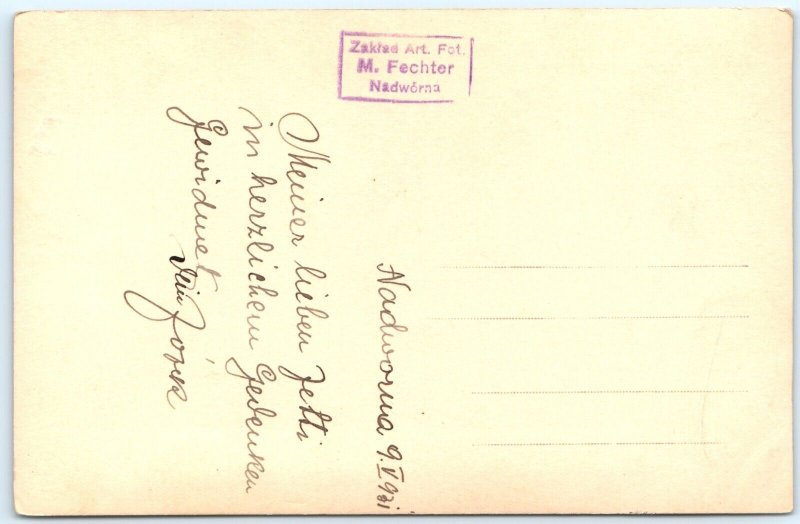 Zakład Art. Fot.
M. Fechter
Nadwórna
Nadworna 9.V.931
Meiner lieben Jetti
in herzlichem Gedenken
Gewidmet
Dein Józek